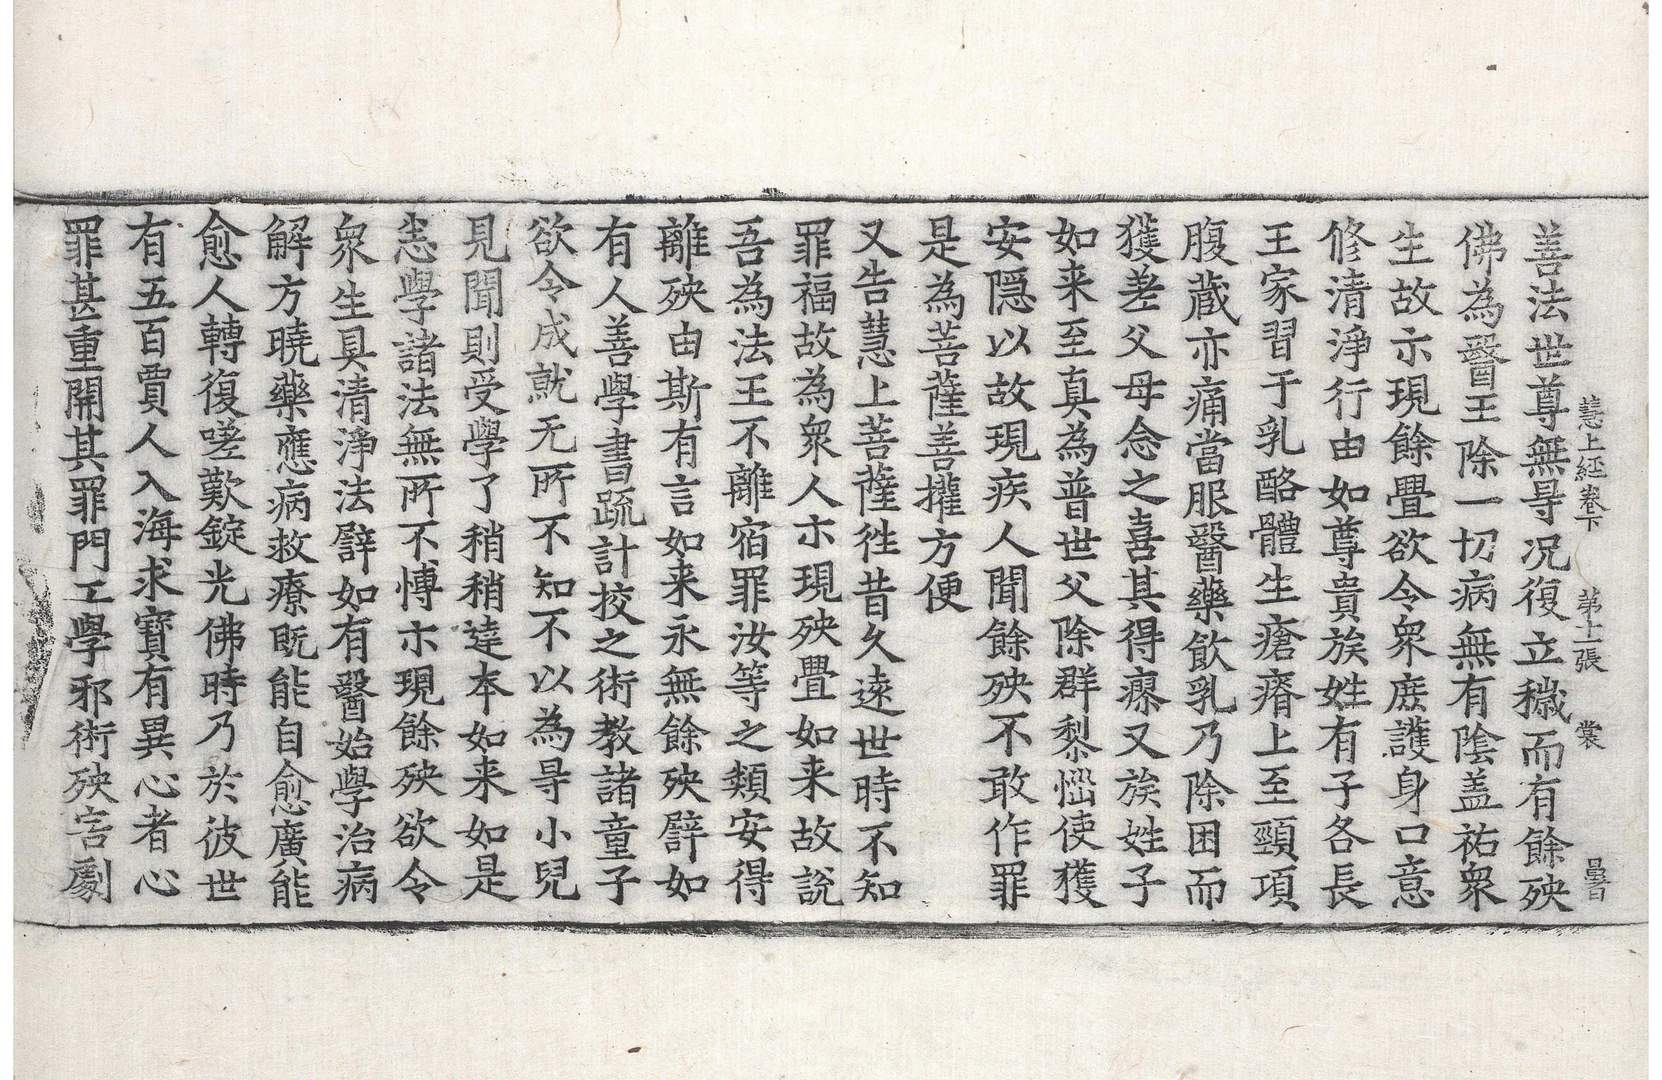 慧上經卷下 第十一張 裳
善法世尊無㝵况復立穢而有餘殃
佛為毉王除一切病無有陰盖祐衆
生故示現餘疊欲令衆庶護身口意
修清淨行由如尊貴族姓有子各長
王家習于乳酪體生瘡瘠上至頸項
腹蔵亦痛當服毉藥飲乳乃除困而
獲差父母念之喜其得瘳又族姓子
如来至真為普世父除群黎惱使獲
安隠以故現疾人聞餘殃不敢作罪
是為菩薩善攉方便
又告慧上菩薩徃昔久遠世時不知
罪福故為衆人示現殃疊如来故説
吾為法王不離宿罪汝等之類安得
離殃由斯有言如来永無餘殃譬如
有人善學書䟽計挍之術教諸童子
欲令成就无所不知不以為㝵小兒
見聞則受學了稍稍達本如来如是
悉學諸法無所不慱示現餘殃欲令
衆生具清淨法譬如有毉始學治病
解方曉藥應病救療既能自愈廣能
愈人轉復嗟歎錠光佛時乃於彼世
有五百賈人入海求寶有異心者心
罪甚重開其罪門工學邪術殃害劇